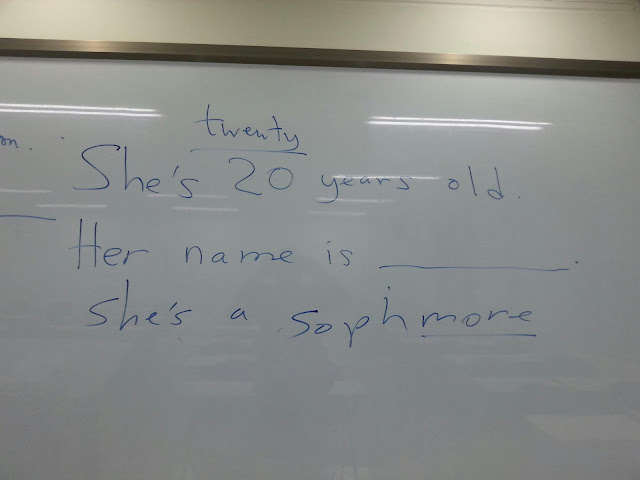 on.
twenty
She's 20 years old.
Her name is ________.
She's a sophmore